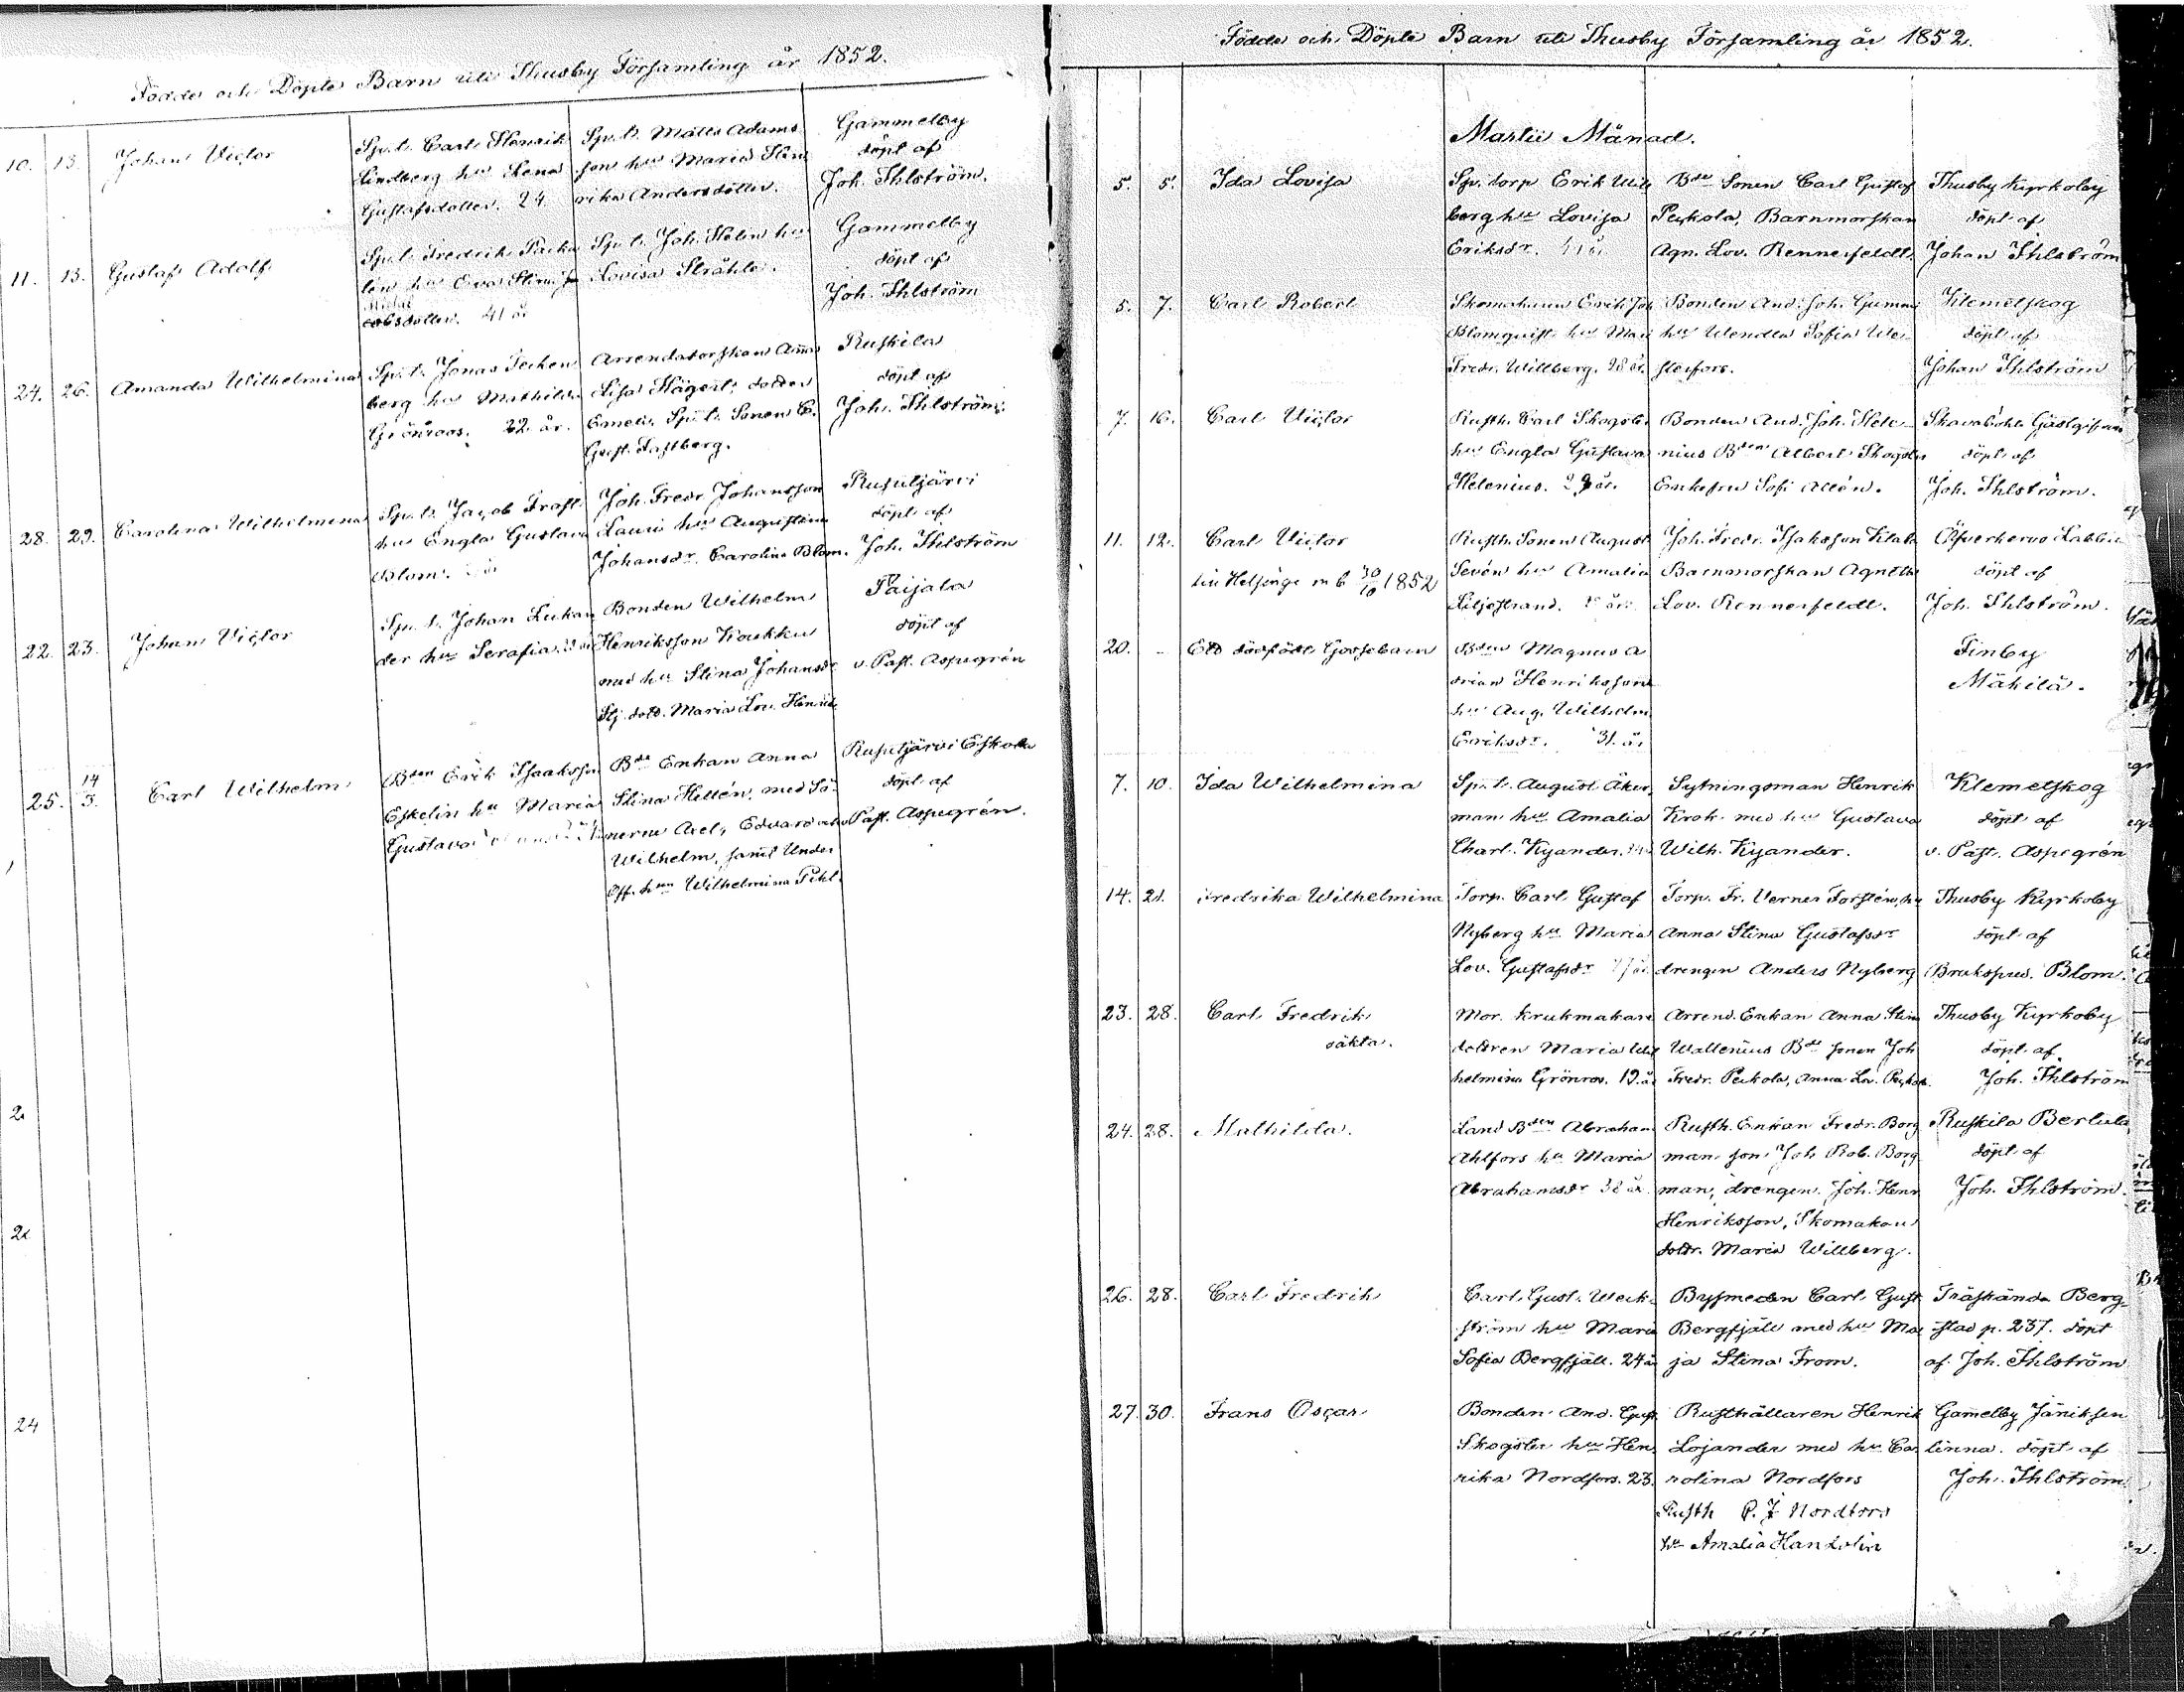 Födde och Döpte Barn uti Thusby Församling år 1852.
10. 13. Johan Victor
Sp. t. Carl Henrik
Lindberg hu Lena
Gustafsdotter. 24.
Sp. t. Matts Adams
son hu Maria Hen
rika Andersdotter.
Gammelby
döpt af
Joh. Ihlström.
11. 13. Gustaf Adolf
Sp. t. Fredrik
hu Eva Stina
dotter. 41 år
Sp. t. Joh. Holm hu
Lovisa Stråhle.
Gammelby
döpt af
Joh. Ihlström
24. 26. Amanda Wilhelmina
Sp. t. Jonas Tecken
berg hu Mathilda
Grönroos. 22. år.
Arrendatorskan Anna
Lisa Hägert, dotter
Emelie Sp. t. Sonen C.
Gust. Fastberg.
Ruskila
döpt af
Joh. Ihlström.
28. 29. Carolina Wilhelmina
Sp. t. Jacob Frast
hu Engla Gustava
Blom. år
Joh. Fredr. Johansson
Lauri hu Augustina
Johansdr. Carolina Blom.
Rusutjärvi
döpt af
Joh. Ihlström
22. 23. Johan Victor
Sp. t. Johan Lukan
der hu Serafia
Bonden Wilhelm
Henriksson Koukku
med hu Stina Johansdr
Stj. dotd. Maria Lov. Henrik
Paijala
döpt af
v. Past. Aspegrén
25. 14/3. Carl Wilhelm
Bden Erik Isaaksson
Eskelin hu Maria
Gustava
Bde Enkan Anna
Stina Hellén, med Sö
nerne Axel, Edvard och
Wilhelm, samt Under
Off. hun Wilhelmina Pihl.
Rusutjärvi Eskola
döpt af
Past. Aspegrén.
2
2
24
Födde och Döpte Barn uti Thusby Församling år 1852.
Martii Månad.
5. 5. Ida Lovisa
Sp. torp Erik Will
berg hu Lovisa
Eriksdr. 41 år.
Bde Sonen Carl Gustaf
Peckola, Barnmorskan
Agn. Lov. Rennerfeldt.
Thusby Kyrkoby
döpt af
Johan Ihlström
5. 7. Carl Robert
Skomakaren Erik Joh
Blomquist hu Mari
Fredr. Willberg. 28 år.
Bonden And. Joh. Gumm
hu Wendla Sofia We
sterfors.
Klemetskog
döpt af
Johan Ihlström
7. 16. Carl Victor
Rusth. Carl Skogster
hu Engla Gustava
Helenius. 29 år.
Bonden And. Joh. Hele
nius Bden Albert Skogster
Enkefru Sofi Allén.
Skavaböhle Gästgifveri
döpt af
Joh. Ihlström.
11. 12. Carl Victor
till Helsinge m b 30/10 1852
Rusth. Sonen August
Sevón hu Amalia
Liljestrand. år.
Joh. Fredr. Isaksson Klaba
Barnmorskan Agneta
Lov. Rennerfeldt.
Öfverkervo Labbis
döpt af
Joh. Ihlström.
20. - Ett dödfödt Gossebarn
Bden Magnus A
drian Henriksson
hu Aug. Wilhelm
Eriksdr. 31. år
Finby
Mäkilä.
7. 10. Ida Wilhelmina
Sp. t. August Åker
man hu Amalia
Charl. Kyander.
Sytningsman Henrik
Krok med hu Gustava
Wilh. Kyander.
Klemetskog
döpt af
v. Past. Aspegrén
14. 21. Fredrika Wilhelmina
Torp. Carl Gustaf
Nyberg hu Maria
Lov. Gustafsdr
Torp. Fr. Verner Forstén, hu
Anna Stina Gustafsdr
drengen Anders Nyberg
Thusby Kyrkoby
döpt af
Brukspred. Blom.
23. 28. Carl Fredrik
oäkta.
Mor. Krukmakare
dottren Maria Wil
helmina Grönroos. 19. år
Arrend. Enkan Anna Stina
Wallenius Bde sonen Joh
Fredr. Peckola, Anna Lov. Peckola
Thusby Kyrkoby
döpt af
Joh. Ihlström
24. 28. Mathilda.
Land Bden Abraham
Ahlfors hu Maria
Abrahamsdr 38 år.
Rusth. Enkan Fredr. Borg
man, son Joh Rob. Borg
man, drengen Joh. Henr
Henriksson, Skomakare
dottr. Maria Willberg.
Ruskila Bertula
döpt af
Joh. Ihlström.
26. 28. Carl Fredrik
Carl Gust. Weck
ström hu Maria
Sofia Bergfjäll. 24 år
Bysmeden Carl Gust
Bergfjäll med hu Ma
ja Stina From.
Träskända Berg
stad p. 237. döpt
af Joh. Ihlström
27. 30. Frans Oscar
Bonden And. Gust.
Skogster hu Hen
rika Nordfors. 23.
Rusthållaren Henrik
Lojander med hu Ca
rolina Nordfors
Rusth P. J Nordfors
hu Amalia Hanholin
Gamelby Jäniksen
linna. döpt af
Joh. Ihlström.